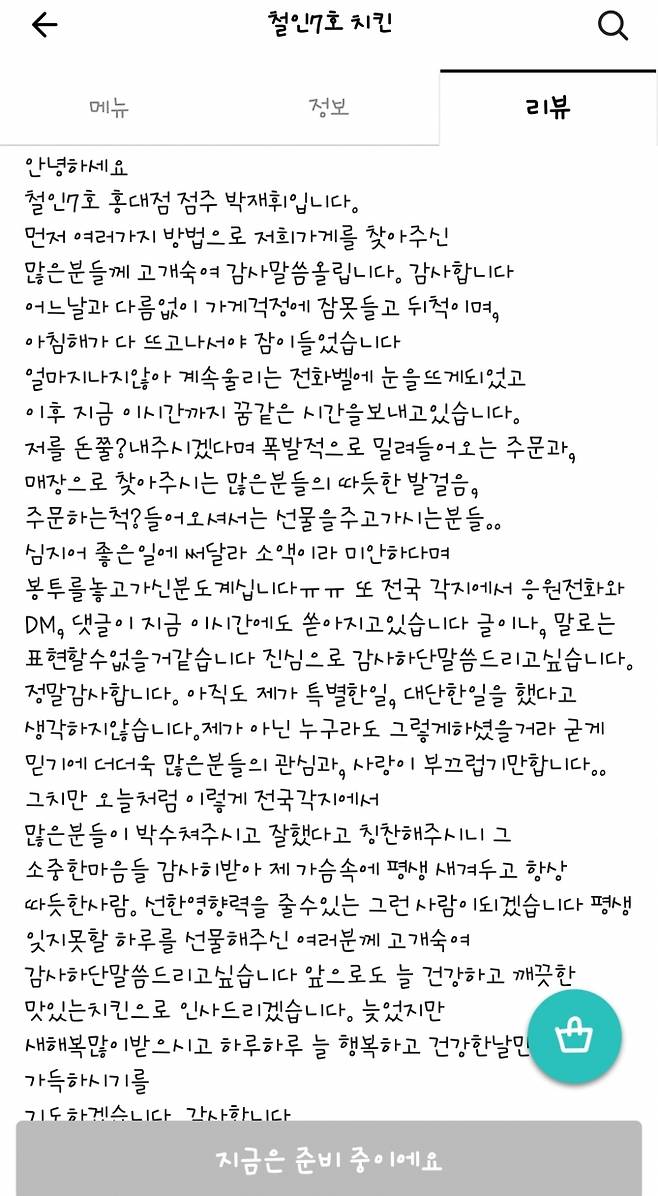 철인7호 치킨
메뉴
정보
리뷰
안녕하세요
철인7호 홍대점 점주 박재휘입니다.
먼저 여러가지 방법으로 저희가게를 찾아주신
많은분들께 고개숙여 감사말씀올립니다. 감사합니다
어느날과 다름없이 가게걱정에 잠못들고 뒤척이며,
아침해가 다 뜨고나서야 잠이들었습니다
얼마지나지않아 계속울리는 전화벨에 눈을뜨게되었고
이후 지금 이시간까지 꿈같은 시간을보내고있습니다.
저를 돈쭐?내주시겠다며 폭발적으로 밀려들어오는 주문과,
매장으로 찾아주시는 많은분들의 따듯한 발걸음,
주문하는척?들어오셔서는 선물을주고가시는분들..
심지어 좋은일에 써달라 소액이라 미안하다며
봉투를놓고가신분도계십니다ㅠㅠ 또 전국 각지에서 응원전화와
DM, 댓글이 지금 이시간에도 쏟아지고있습니다 글이나, 말로는
표현할수없을거같습니다 진심으로 감사하단말씀드리고싶습니다.
정말감사합니다. 아직도 제가 특별한일, 대단한일을 했다고
생각하지않습니다.제가 아닌 누구라도 그렇게하셨을거라 굳게
믿기에 더더욱 많은분들의 관심과, 사랑이 부끄럽기만합니다..
그치만 오늘처럼 이렇게 전국각지에서
많은분들이 박수쳐주시고 잘했다고 칭찬해주시니 그
소중한마음들 감사히받아 제 가슴속에 평생 새겨두고 항상
따듯한사람. 선한영향력을 줄수있는 그런 사람이되겠습니다 평생
잊지못할 하루를 선물해주신 여러분께 고개숙여
감사하단말씀드리고싶습니다 앞으로도 늘 건강하고 깨끗한
맛있는치킨으로 인사드리겠습니다. 늦었지만
새해복많이받으시고 하루하루 늘 행복하고 건강한날만
가득하시기를
기도하겠습니다. 감사합니다
지금은 준비 중이에요